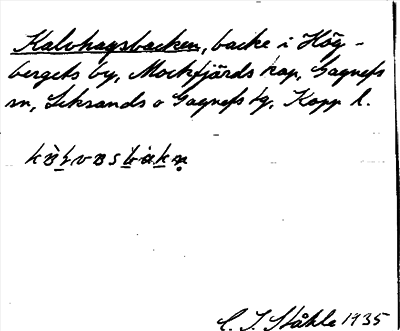 Kalvhagsbacken, backe i Hög-
bergets by, Mockfjärds kap, Gagnefs
sn, Leksands o Gagnefs tg, Kopp l.
C. I. Ståhle 1935